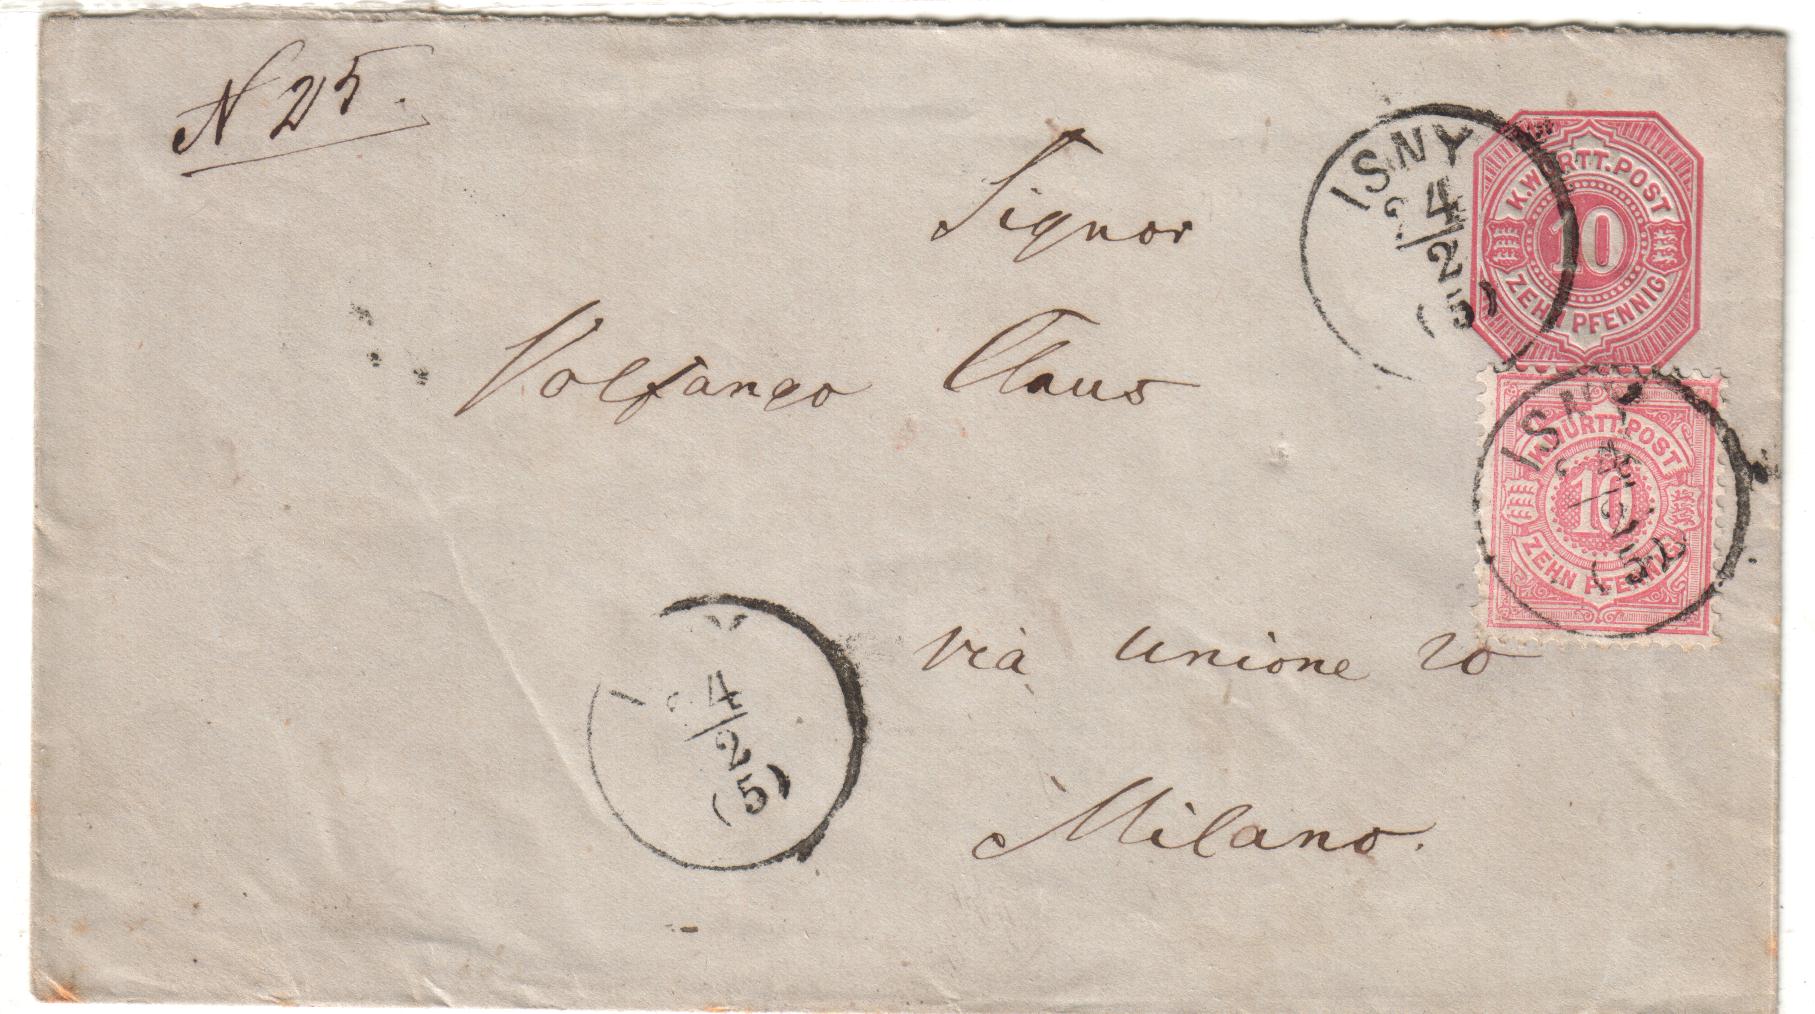 N 25.
Signor
Volfango Claus
via Unione 20
Milano.
K.WÜRTT.POST
10
ZEHN PFENNIG
ISNY
4
2
(5)
K.WÜRTT.POST
10
ZEHN PFENNIG
2
4
2
(5)